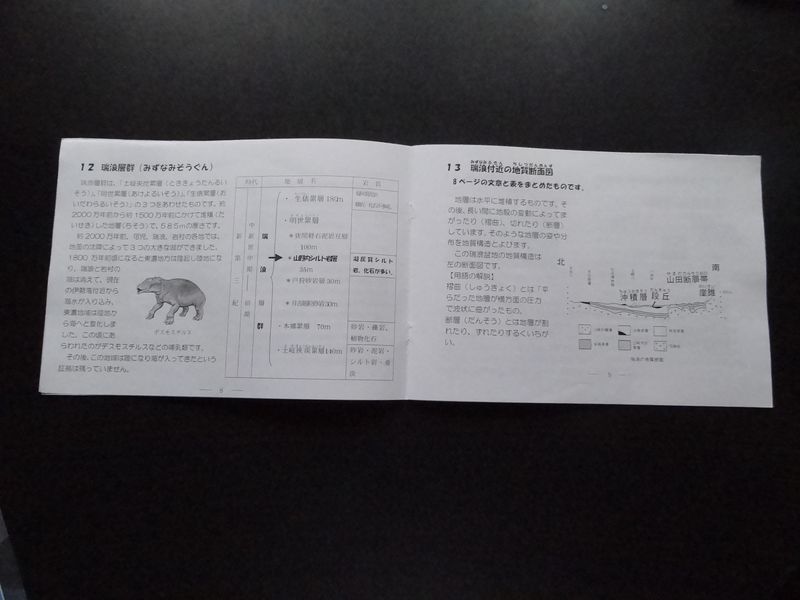 12 瑞浪層群（みずなみそうぐん）
瑞浪層群は、「土岐夾炭累層（ときききょうたんるいそう）、「明世累層（あけよるいそう）」、「生俵累層（おいだわらるいそう）」の3つをあわせたものです。約2000万年前から約1500万年前にかけて堆積（たいせき）した地層（ちそう）で、585mの厚さです。
約2000万年前、可児、瑞浪、岩村の各地では、地面の沈降によって3つの大きな湖ができました。
1800万年前頃になると東濃地方は隆起し陸地になり、瑞浪と岩村の
湖は消えて、現在
の伊勢湾付近から
海水が入り込み、
東濃地域は陸地か
ら海へと変化しま
した。この頃にあ
らわれたのがデスモスチルスなどの哺乳類です。
その後、この地域は陸になり海が入ってきたという
証拠は残っていません。
デスモスチルス
時代
地層名
岩質
新第三紀
中新世中期〜前期
瑞浪層群
・生俵累層 180m
・明世累層
＊狭間軽石泥岩互層
100m
＊山野内シルト岩層
35m
凝灰質シルト
岩、化石が多い。
＊戸狩砂岩層 30m
＊月吉砂岩30m
・本郷累層 70m
砂岩・礫岩、
植物化石
・土岐挟炭累層140m
砂岩・泥岩・
シルト岩・亜
炭
8
13 瑞浪付近の地質断面図
みずなみふきん
ちしつだんめんず
8ページの文章と表をまとめたものです。
地層は水平に堆積するものです。そ
の後、長い間に地殻の変動によってま
がったり（褶曲）、切れたり（断層）
しています。そのような地層の姿や分
布を地質構造とよびます。
この瑞浪盆地の地質構造は
左の断面図です。
【用語の解説】
褶曲（しゅうきょく）とは「平
らだった地層が横方面の圧力
で波状に曲がったもの。
断層（だんそう）とは地層が割
れたり、ずれたりするくいちが
い。
北
南
山田断層帯
沖積層 段丘
崖錐
瑞浪の地質断面
9